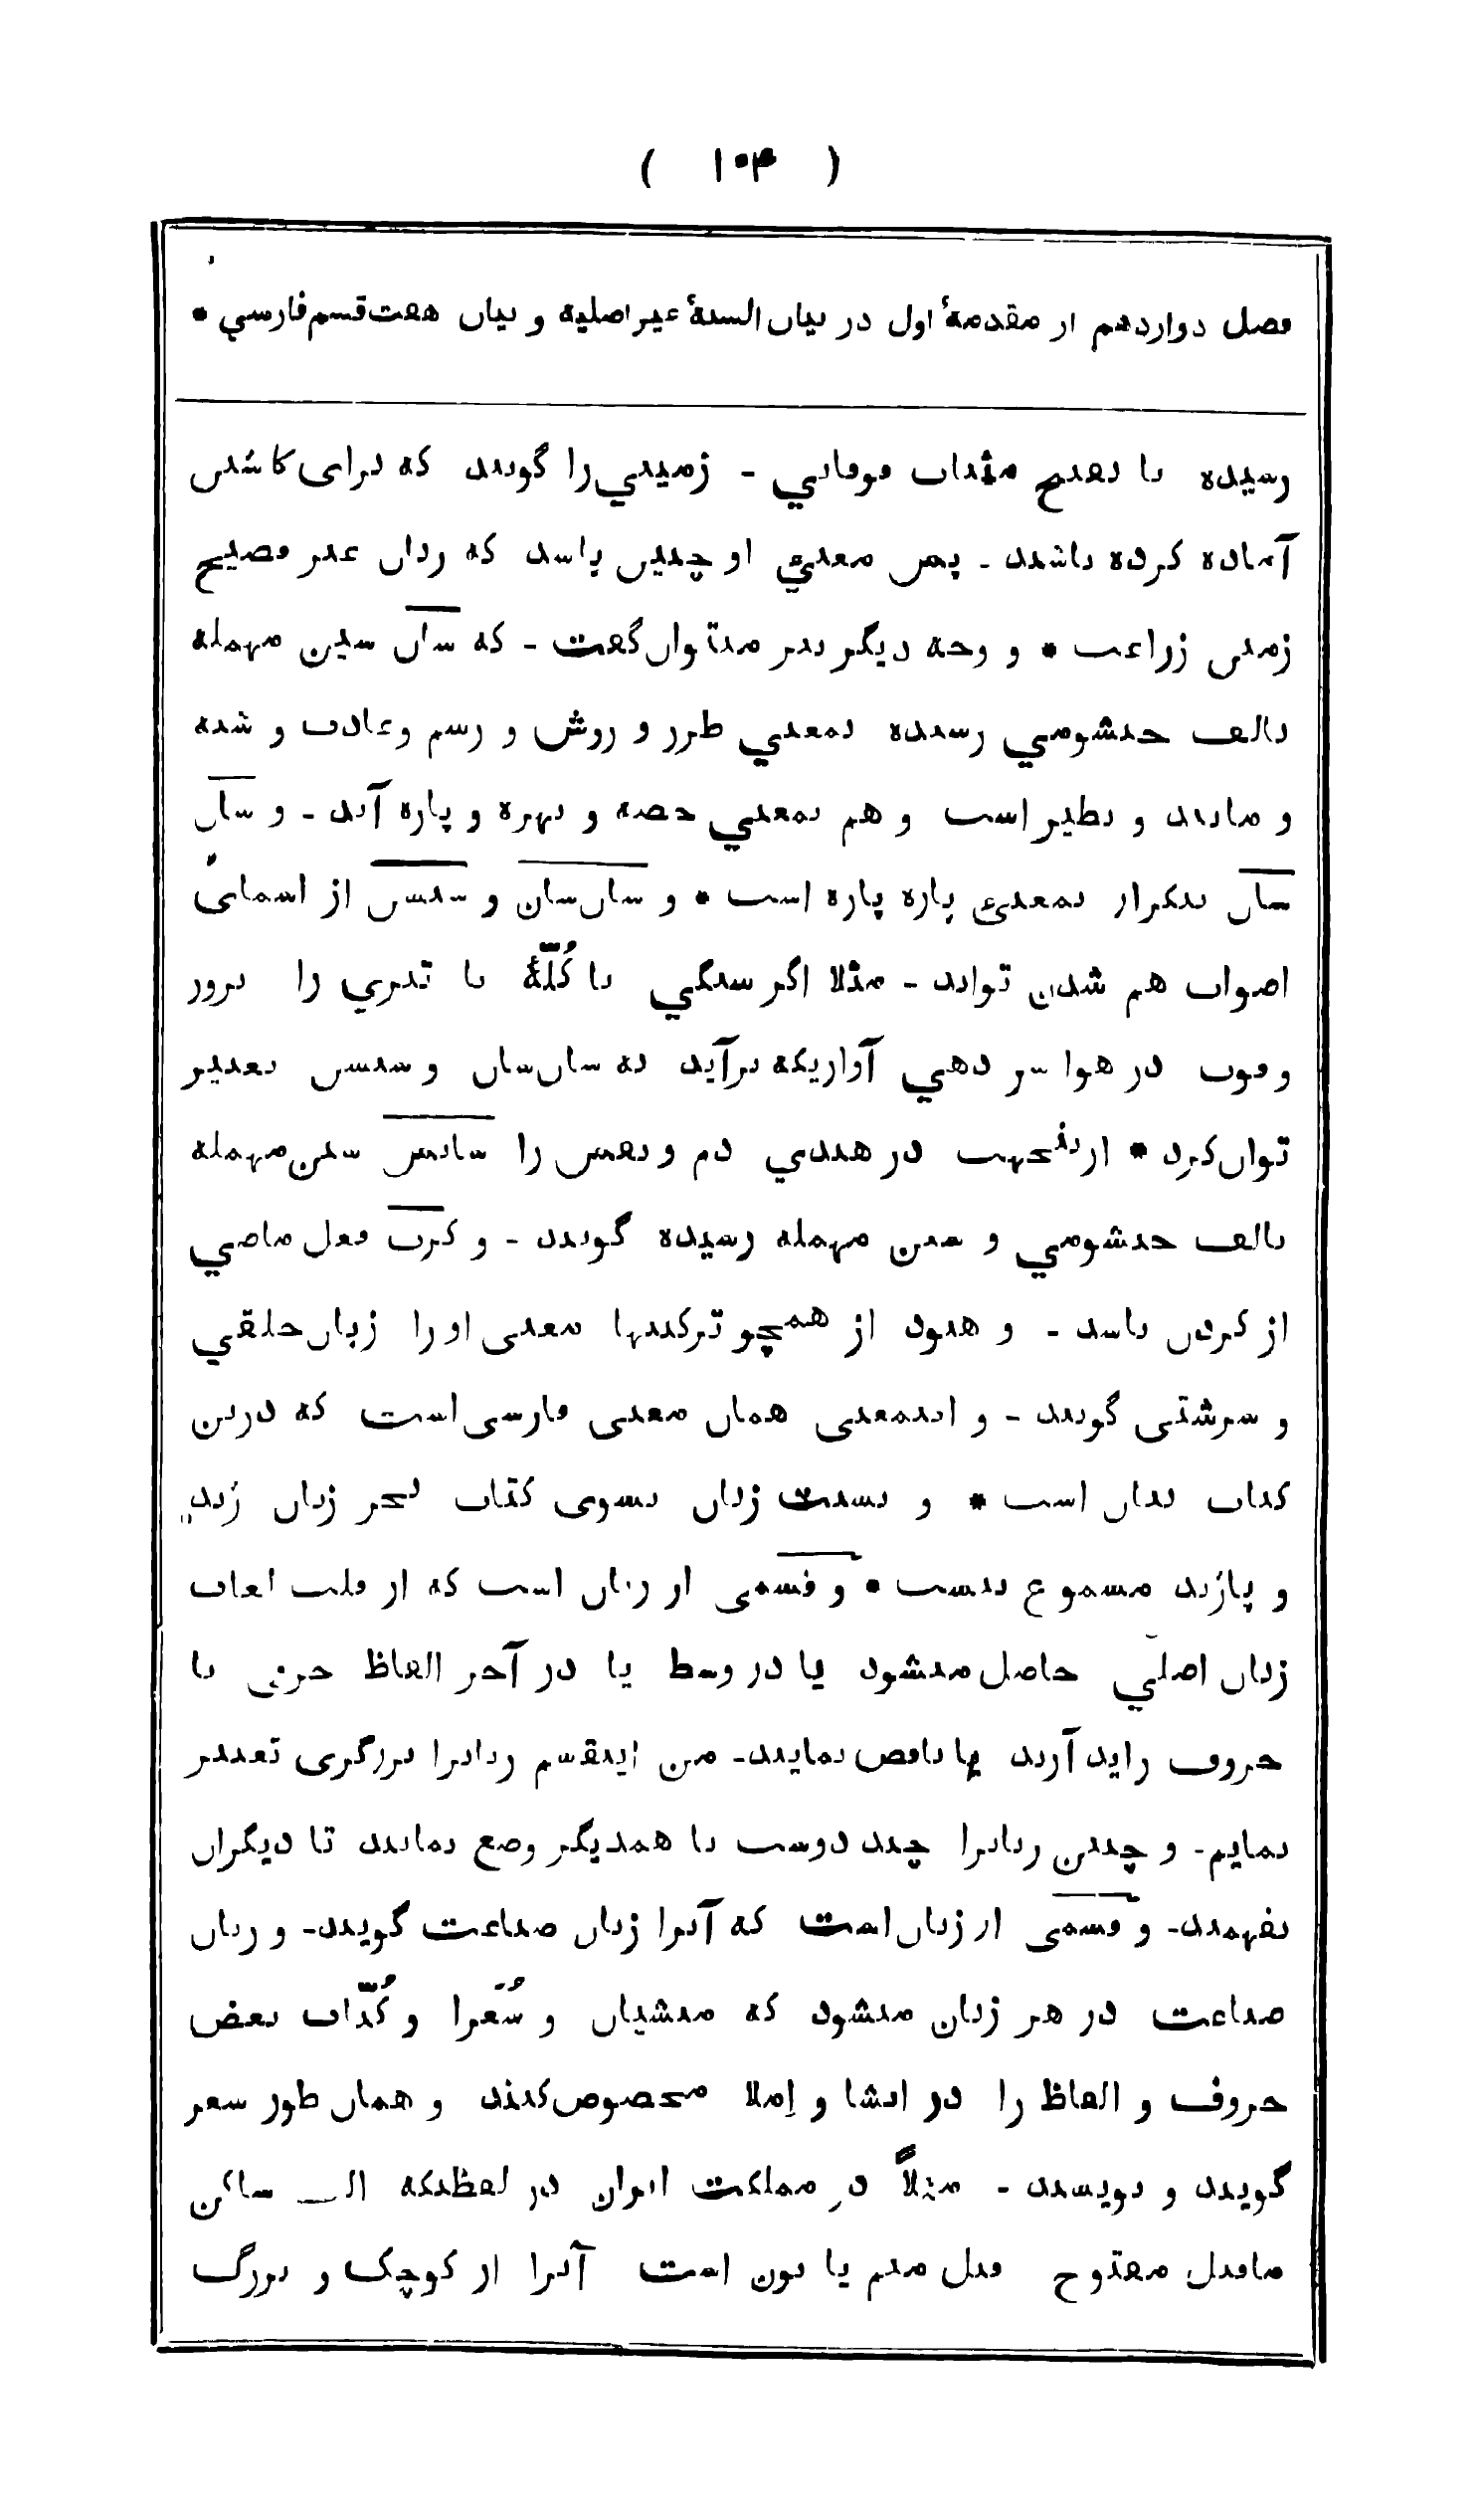 ( ۱۰۴ )
فصل دوازدهم از مقدمهٔ اول در بیان السنهٔ غیر اصلیه و بیان هفت قسم فارسي •
رسیده با بفتح مثناة فوقاني - زمیني را گویند که برای کاشتن
آماده کرده باشند - پس معنیء او چنین باسد که زبان غیر فصیح
زمین زراعت • و وجه دیگر نیز میتوان گفت - که سان سین مهمله
بالف خیشومي رسیده بمعني طرز و روش و رسم و عادت و شبه
و مانند و نظیر است و هم بمعني حصه و بهره و پاره آید - و سان
سان بتکرار بمعنیء پاره پاره است • و سان‌سان و سنسن از اسمای
اصوات هم شدن تواند - مثلا اگر سنگي یا کُلّهٔ یا تیري را بزور
و قوت در هوا سر دهي آوازیکه برآید به سان‌سان و سنسن تعبیر
توان کرد • ازینجهت در هندي دم و نفس را سانس سین مهمله
بالف خیشومي و سین مهمله رسیده گویند - و کرت فعل ماضي
از کردن باسد - و هنود از همچو ترکیبها معنی او را زبان خلقي
و سرشتی گویند - و اینمعنی همان معنی فارسی است که درین
کتاب بیان است • و نسبت زبان بسوی کتاب بجز زبان زند
و پازند مسموع نیست • و قسمی از زبان است که از قلب لغات
زبان اصلي حاصل میشود یا در وسط یا در آخر الفاظ حرفی یا
حروف زاید آرند یا ناقص نمایند - من اینقسم زبانرا بزرگری تعبیر
نمایم - و چنین زبانرا چند دوست با همدیگر وضع نمایند تا دیگران
نفهمند - و قسمی از زبان است که آنرا زبان صناعت گویند - و زبان
صناعت در هر زبان میشود که منشیان و شُعَرا و کُتّاب بعض
حروف و الفاظ را در انشا و اِملا مخصوص کنند و همان طور شعر
گویند و نویسند - مثلاً در مملکت ایران در لفظیکه الف ساکن
ماقبل مفتوح قبل میم یا نون است آنرا از کوچک و بزرگ